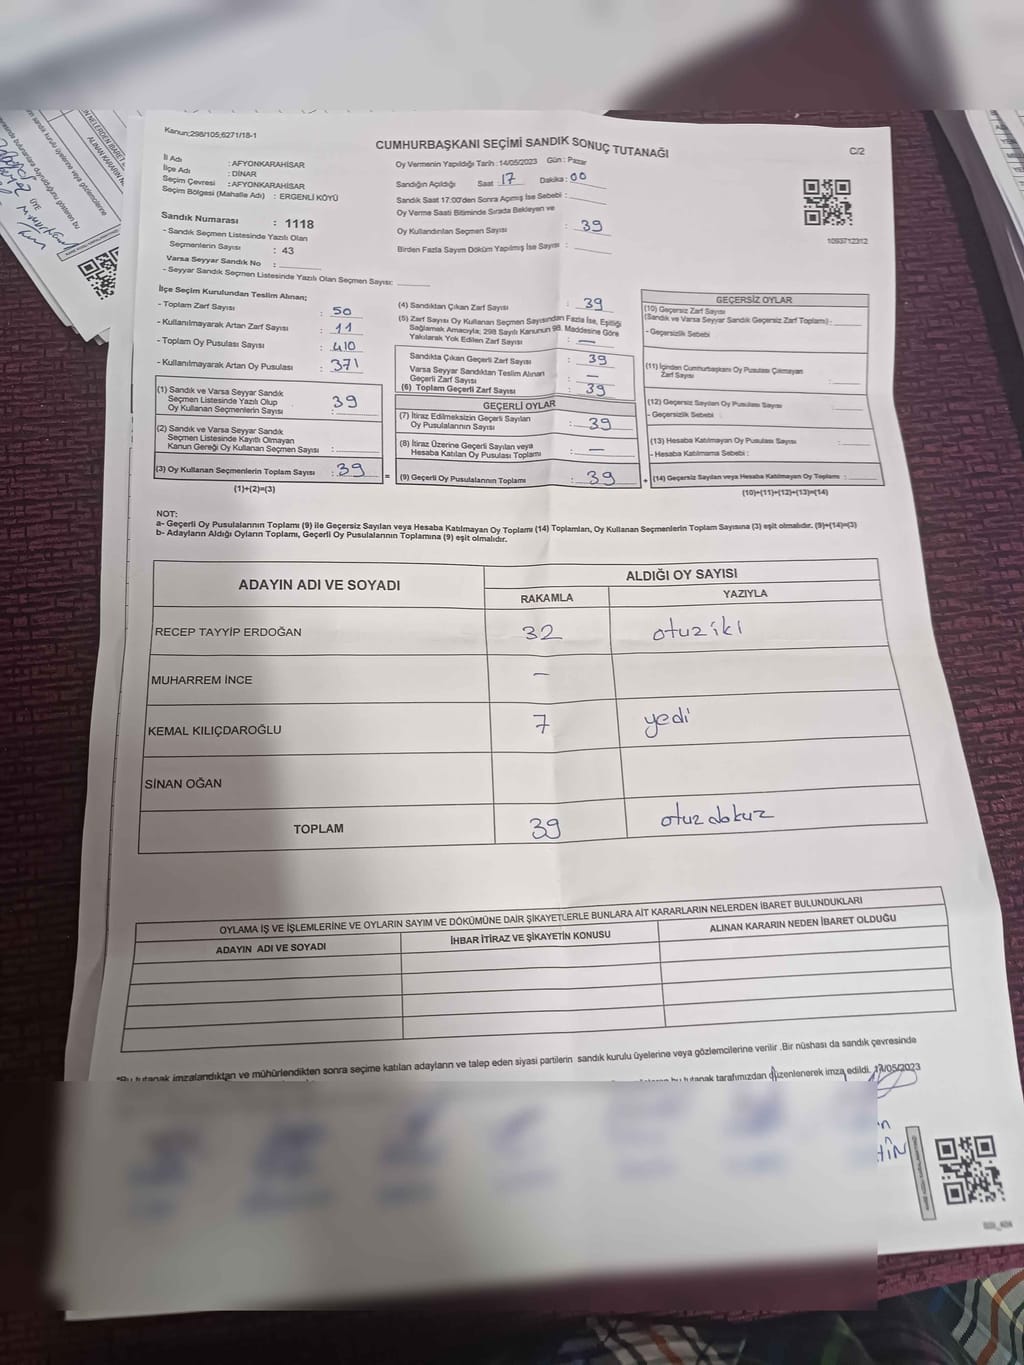 Kanun;298/105;6271/18-1
CUMHURBAŞKANI SEÇİMİ SANDIK SONUÇ TUTANAĞI
C/2
İl Adı : AFYONKARAHİSAR
İlçe Adı : DİNAR
Seçim Çevresi : AFYONKARAHİSAR
Seçim Bölgesi (Mahalle Adı) : ERGENLİ KÖYÜ
Sandık Numarası : 1118
- Sandık Seçmen Listesinde Yazılı Olan
Seçmenlerin Sayısı : 43
Varsa Seyyar Sandık No :
- Seyyar Sandık Seçmen Listesinde Yazılı Olan Seçmen Sayısı:
Oy Vermenin Yapıldığı Tarih : 14/05/2023 Gün : Pazar
Sandığın Açıldığı Saat 17 Dakika : 00
Sandık Saat 17:00'den Sonra Açımış İse Sebebi :
Oy Verme Saati Bitiminde Sırada Bekleyen ve
Oy Kullandırılan Seçmen Sayısı : 39
Birden Fazla Sayım Döküm Yapılmış İse Sayısı :
1093712312
İlçe Seçim Kurulundan Teslim Alınan;
- Toplam Zarf Sayısı : 50
- Kullanılmayarak Artan Zarf Sayısı : 11
- Toplam Oy Pusulası Sayısı : 410
- Kullanılmayarak Artan Oy Pusulası : 371
(1) Sandık ve Varsa Seyyar Sandık
Seçmen Listesinde Yazılı Olup
Oy Kullanan Seçmenlerin Sayısı : 39
(2) Sandık ve Varsa Seyyar Sandık
Seçmen Listesinde Kayıtlı Olmayan
Kanun Gereği Oy Kullanan Seçmen Sayısı :
(3) Oy Kullanan Seçmenlerin Toplam Sayısı : 39 =
(1)+(2)=(3)
(4) Sandıktan Çıkan Zarf Sayısı : 39
(5) Zarf Sayısı Oy Kullanan Seçmen Sayısından Fazla İse, Eşitliği
Sağlamak Amacıyla; 298 Sayılı Kanunun 98. Maddesine Göre
Yakılarak Yok Edilen Zarf Sayısı : —
Sandıkta Çıkan Geçerli Zarf Sayısı : 39
Varsa Seyyar Sandıktan Teslim Alınan
Geçerli Zarf Sayısı : —
(6) Toplam Geçerli Zarf Sayısı : 39
GEÇERLİ OYLAR
(7) İtiraz Edilmeksizin Geçerli Sayılan
Oy Pusulalarının Sayısı : 39
(8) İtiraz Üzerine Geçerli Sayılan veya
Hesaba Katılan Oy Pusulası Toplamı : —
(9) Geçerli Oy Pusulalarının Toplamı : 39 +
GEÇERSİZ OYLAR
(10) Geçersiz Zarf Sayısı
(Sandık ve Varsa Seyyar Sandık Geçersiz Zarf Toplamı) :
- Geçersizlik Sebebi
(11) İçinden Cumhurbaşkanı Oy Pusulası Çıkmayan
Zarf Sayısı :
(12) Geçersiz Sayılan Oy Pusulası Sayısı :
- Geçersizlik Sebebi
(13) Hesaba Katılmayan Oy Pusulası Sayısı :
- Hesaba Katılmama Sebebi :
(14) Geçersiz Sayılan veya Hesaba Katılmayan Oy Toplamı :
(10)+(11)+(12)+(13)=(14)
NOT:
a- Geçerli Oy Pusulalarının Toplamı (9) ile Geçersiz Sayılan veya Hesaba Katılmayan Oy Toplamı (14) Toplamları, Oy Kullanan Seçmenlerin Toplam Sayısına (3) eşit olmalıdır. (9)+(14)=(3)
b- Adayların Aldığı Oyların Toplamı, Geçerli Oy Pusulalarının Toplamına (9) eşit olmalıdır.
ADAYIN ADI VE SOYADI
ALDIĞI OY SAYISI
RAKAMLA YAZIYLA
RECEP TAYYİP ERDOĞAN 32 otuz iki
MUHARREM İNCE —
KEMAL KILIÇDAROĞLU 7 yedi
SİNAN OĞAN
TOPLAM 39 otuz dokuz
OYLAMA İŞ VE İŞLEMLERİNE VE OYLARIN SAYIM VE DÖKÜMÜNE DAİR ŞİKAYETLERLE BUNLARA AİT KARARLARIN NELERDEN İBARET BULUNDUKLARI
ADAYIN ADI VE SOYADI İHBAR İTİRAZ VE ŞİKAYETİN KONUSU ALINAN KARARIN NEDEN İBARET OLDUĞU
*Bu tutanak imzalandıktan ve mühürlendikten sonra seçime katılan adayların ve talep eden siyasi partilerin sandık kurulu üyelerine veya gözlemcilerine verilir .Bir nüshası da sandık çevresinde
bu tutanak tarafımızdan düzenlenerek imza edildi.